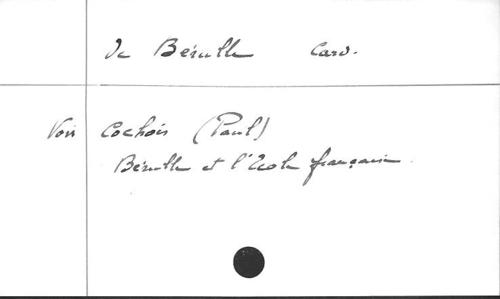 de Bérulle Card.
Voir Cochois (Paul)
Bérulle et l'Ecole française.